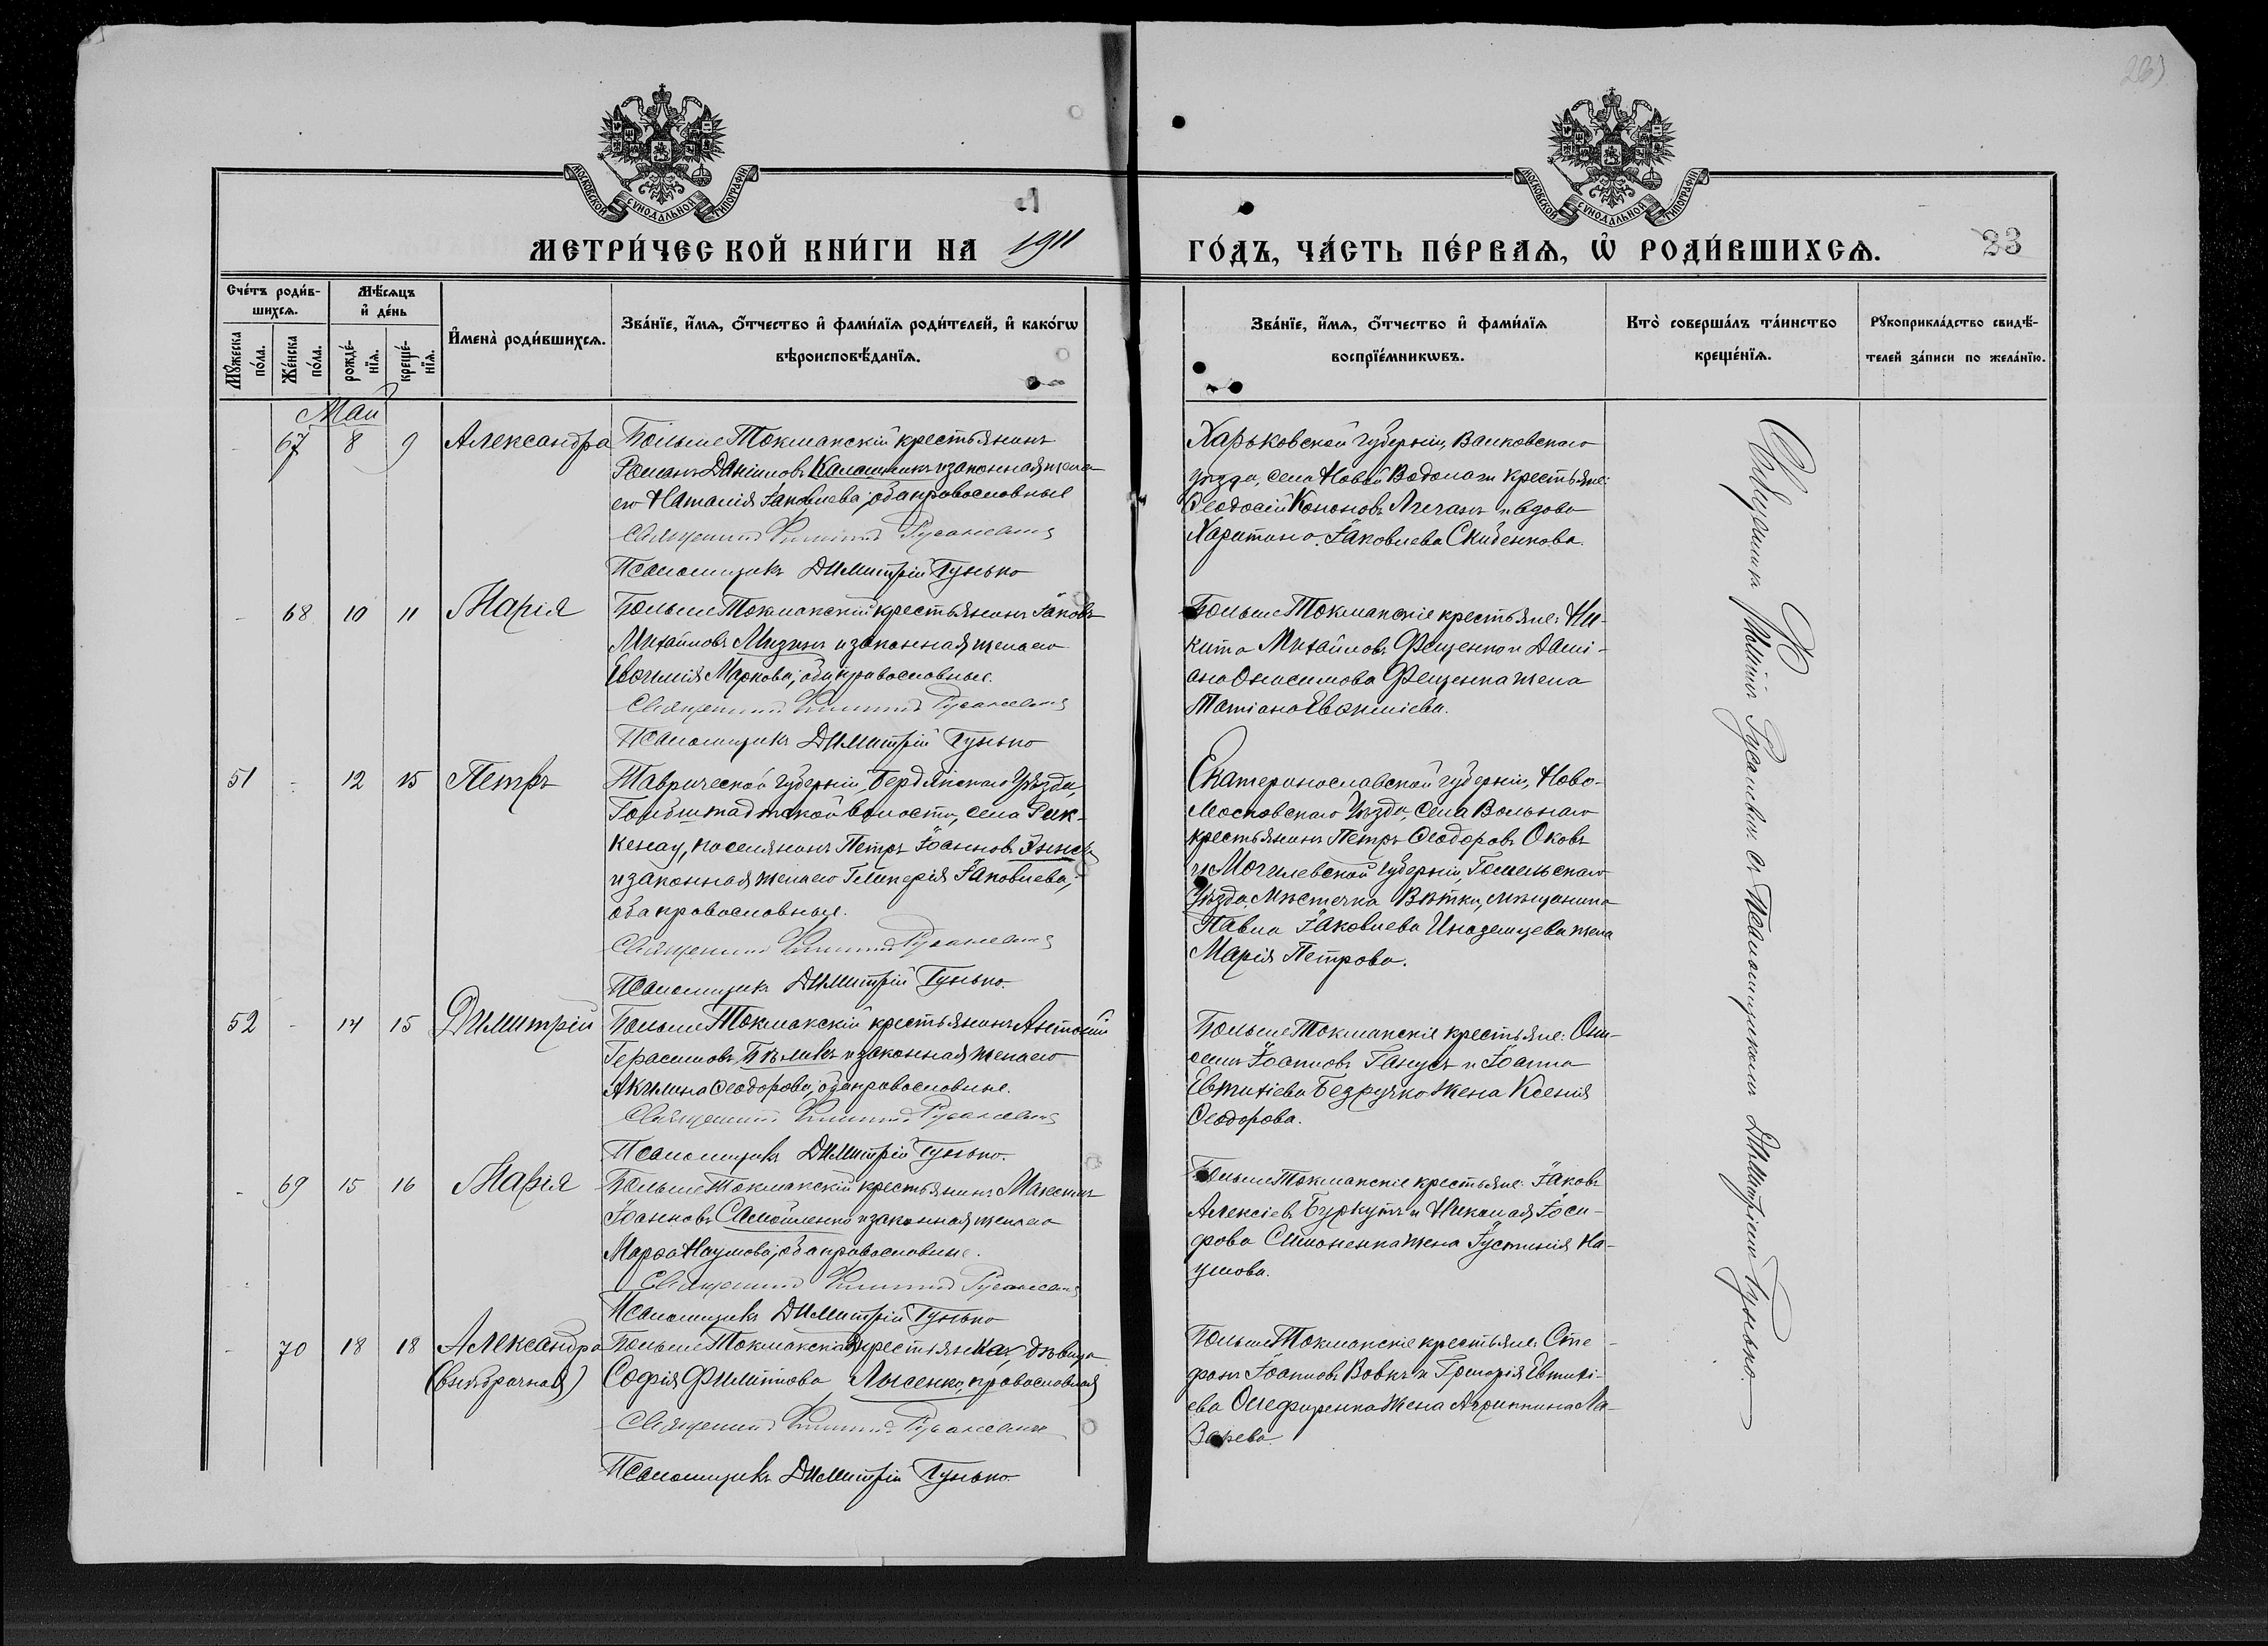 МОСКОВСКОЙ СѴНОДАЛЬНОЙ ТИПОГРАФІИ
МОСКОВСКОЙ СѴНОДАЛЬНОЙ ТИПОГРАФІИ
МЕТРИ́ЧЕСКОЙ КНИ́ГИ НА 1911
ГО́ДЪ, ЧА́СТЬ ПЕ́РВАѦ, Ѡ҆ РОДИ́ВШИХСѦ.
23
Сче́тъ роди́в-
шихсѧ.
Мꙋ́жеска
по́ла.
Же́нска
по́ла.
Мѣ́сѧцъ
и҆ де́нь
рожде́-
нїѧ.
креще́-
нїѧ.
И҆мена̀ роди́вшихсѧ.
Зва́нїе, и҆́мѧ, ѻ҆́тчество и҆ фами́лїѧ роди́телей, и҆ како́гѡ
вѣроисповѣ́данїѧ.
Зва́нїе, и҆́мѧ, ѻ҆́тчество и҆ фами́лїѧ
воспрїе́мникѡвъ.
Кто̀ соверша́лъ та́инство
креще́нїѧ.
Рꙋкоприкла́дство свидѣ́-
телей за́писи по жела́нїю.
Май
- 67 8 9 Александра
Больше Токмакскій крестьянинъ
Романъ Даніиловъ Калашникъ и законная жена
его Наталія Іаковлева, оба православные
Священникъ Русаневичъ
Псаломщикъ Димитрій Гунько
Харьковской губерніи, Валковскаго
уѣзда, села Новой Водолаги крестьяне:
Ѳеодосій Кононовъ и вдова
Харитина Іаковлева Скиденкова.
- 68 10 11 Марія
Больше Токмакскій крестьянинъ Іаковъ
Михайловъ Мизинъ и законная жена его
Евфимія Маркова, оба православные.
Священникъ Русаневичъ
Псаломщикъ Димитрій Гунько
Больше Токмакскіе крестьяне: Ни-
кита Михайловъ Фещенко и Дамі-
ана Онисимова Фещенка жена
Татіана Евфиміева.
51 - 12 15 Петръ
Таврической губерніи, Бердянскаго уѣзда,
Гальбштадтской волости, села Рик-
кенау, поселянинъ Петръ Іоанновъ Эннсъ
и законная жена его Гликерія Іаковлева,
оба православные.
Священникъ Русаневичъ
Псаломщикъ Димитрій Гунько.
Екатеринославской губерніи, Ново-
московскаго уѣзда, села Вольнаго
крестьянинъ Петръ Ѳеодоровъ Оковъ
и Могилевской губерніи, Гомельскаго
уѣзда, мѣстечка Вѣтки, мѣщанина
Павла Іаковлева Иноземцева жена
Марія Петрова.
52 - 14 15 Димитрій
Больше Токмакскій крестьянинъ Антоній
Герасимовъ Бѣликъ и законная жена его
Акилина Ѳеодорова, оба православные.
Священникъ Русаневичъ
Псаломщикъ Димитрій Гунько.
Больше Токмакскіе крестьяне: Они-
симъ Іоанновъ Ганусъ и Іоанна
Евтихіева Безручко жена Ксенія
Ѳеодорова.
- 69 15 16 Марія
Больше Токмакскій крестьянинъ Максимъ
Іоанновъ Самойленко и законная жена его
Марѳа Наумова, оба православные.
Священникъ Русаневичъ
Псаломщикъ Димитрій Гунько
Больше Токмакскіе крестьяне: Іаковъ
Алексіевъ Буркутъ и Николая Іоси-
фова Симоненка жена Іустинія На-
умова.
- 70 18 18 Александра
(внѣбрачная)
Больше Токмакская крестьянка, дѣвица
Софія Филиппова Лысенко, православная
Священникъ Русаневичъ
Псаломщикъ Димитрій Гунько.
Больше Токмакскіе крестьяне: Сте-
фанъ Іоанновъ Вовкъ и Григорія Евтихі-
ева Олефиренка жена Агриппина Ла-
зарева.
Священникъ Русаневичъ съ Псаломщикомъ Димитріемъ Гунько.